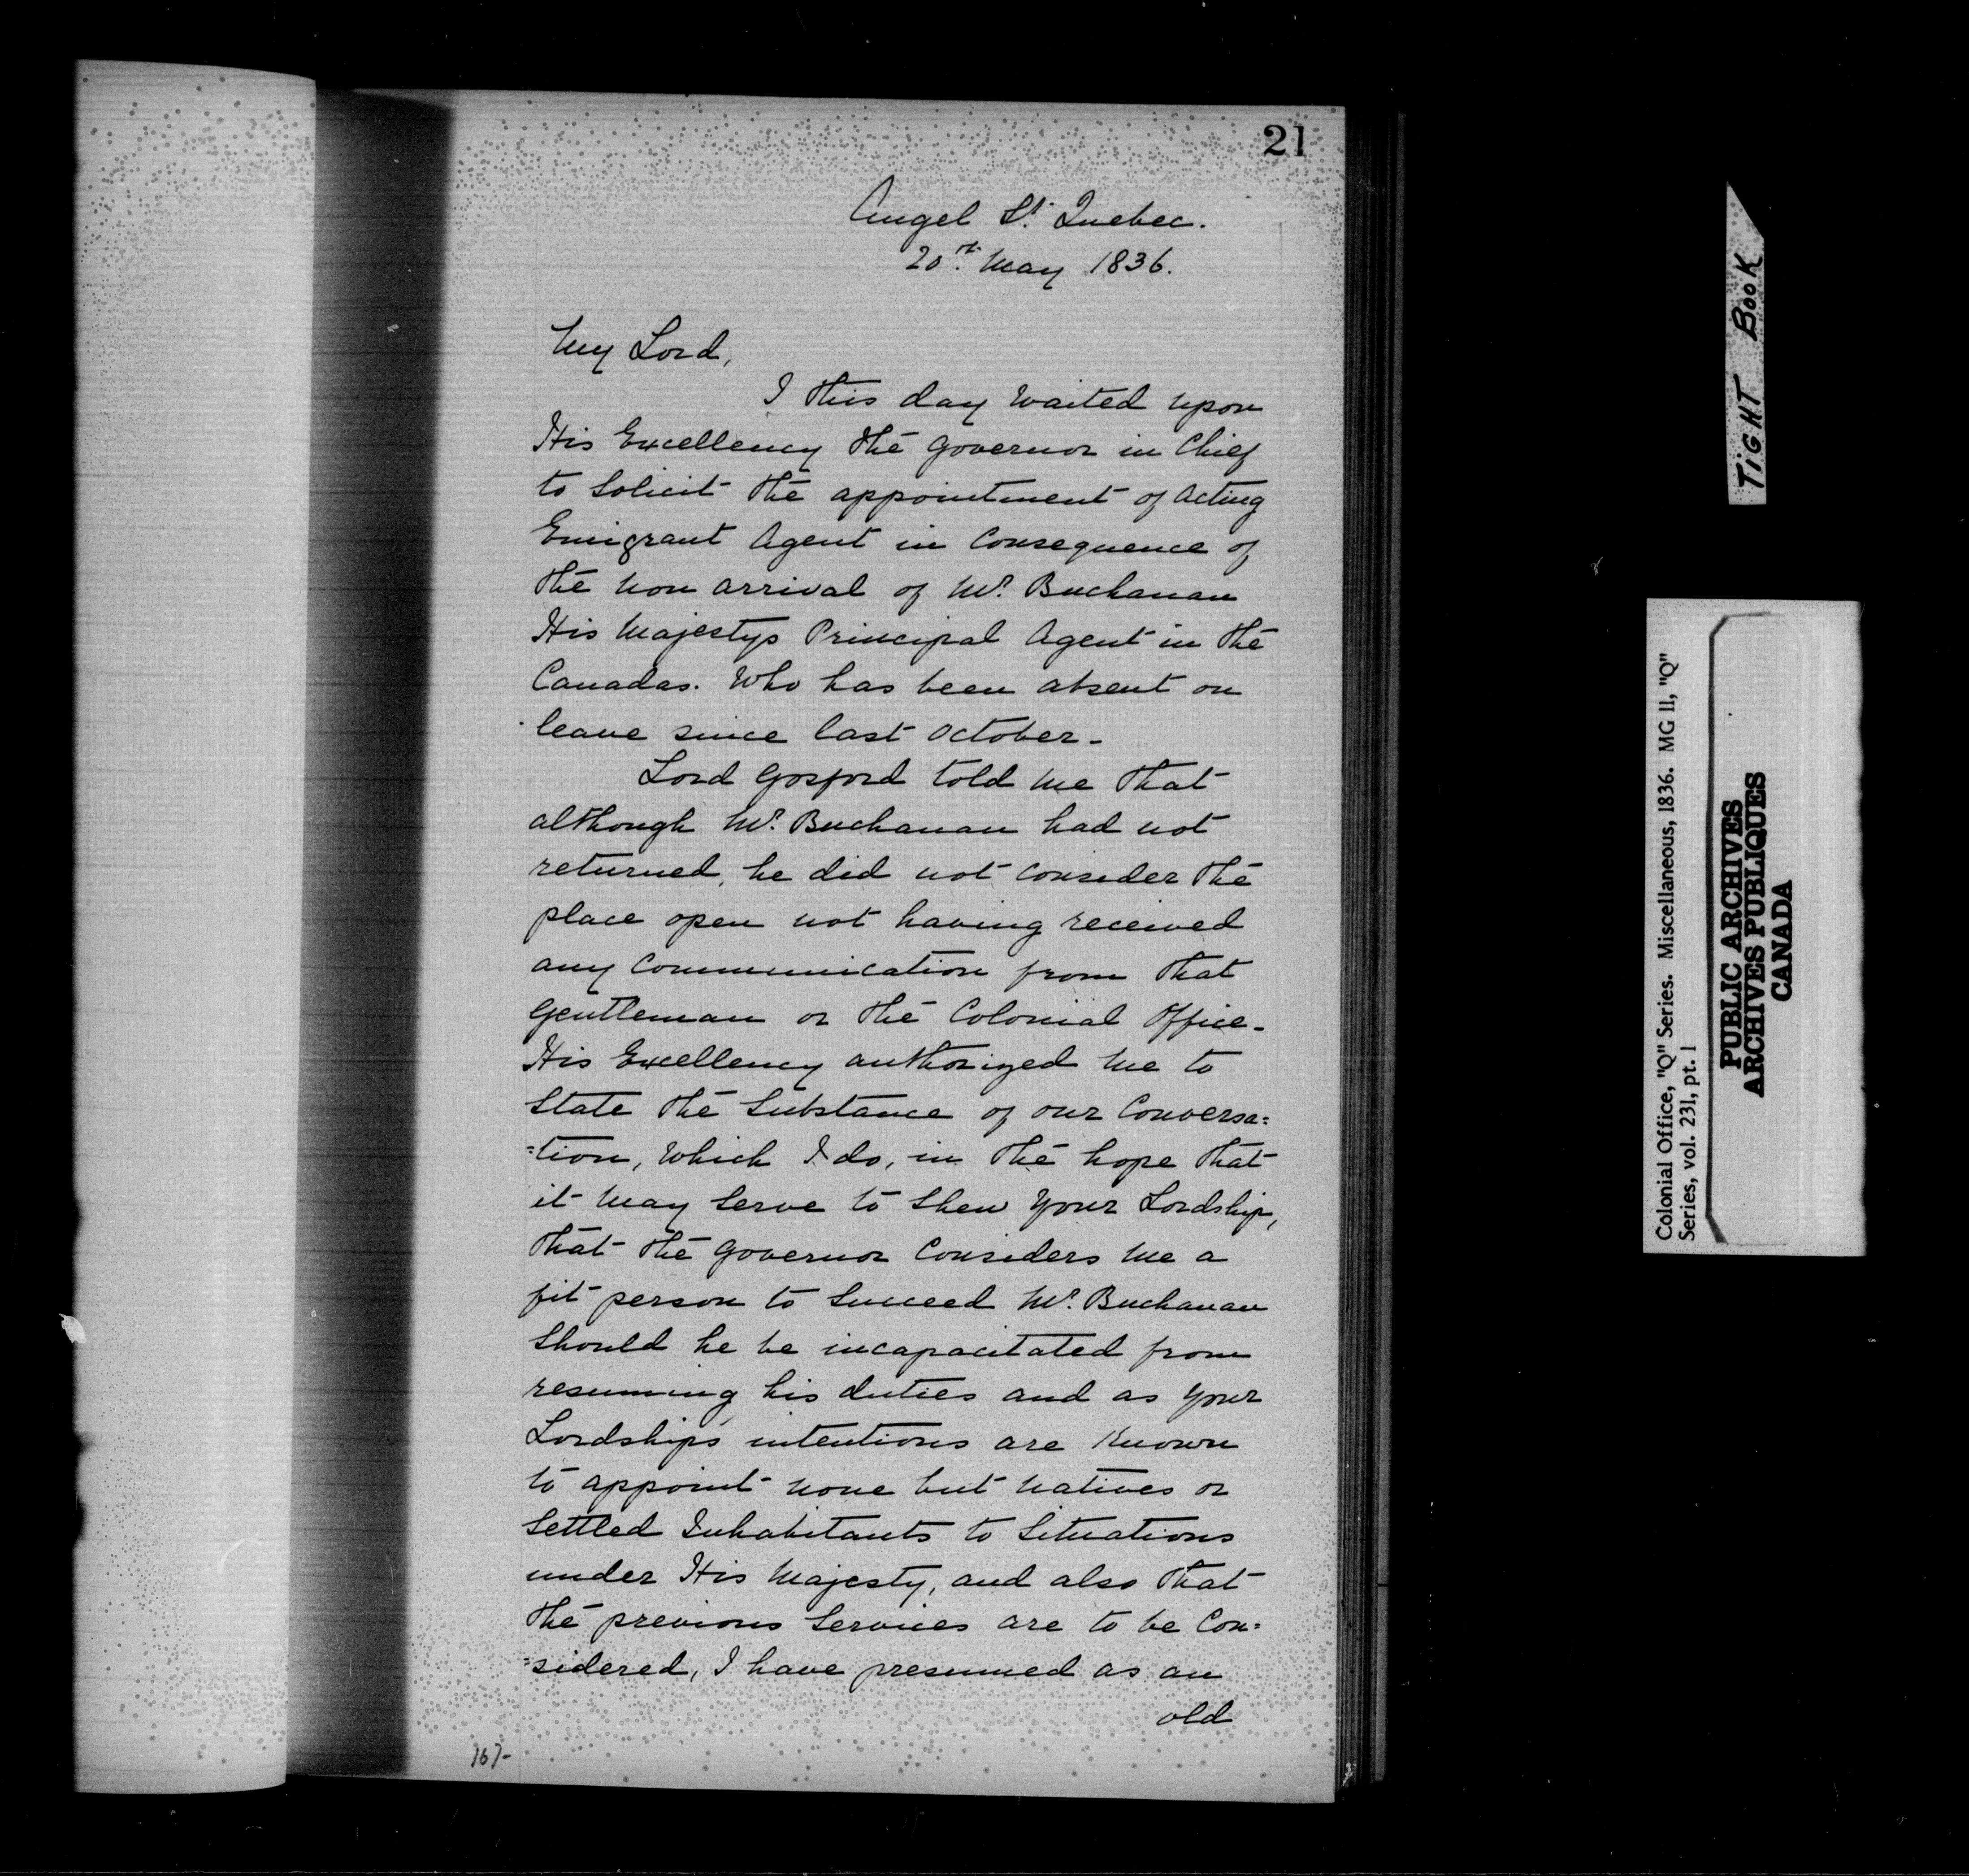 21
Angel St. Quebec.
20th. May 1836.
My Lord,
I this day waited upon
His Excellency the Governor in Chief
to Solicit the appointment of Acting
Emigrant Agent in Consequence of
the non arrival of Mr. Buchanan
His Majestys Principal Agent in the
Canadas. Who has been absent on
leave since last October -
Lord Gosford told me that
although Mr. Buchanan had not
returned, he did not consider the
place open not having received
any Communication from that
Gentleman or the Colonial Office -
His Excellency authorized me to
State the Substance of our Conversa=
=tion, Which I do, in the hope that
it May Serve to Shew Your Lordship,
that the Governor Considers me a
fit person to Succeed Mr. Buchanan
Should he be incapacitated from
resuming his duties and as Your
Lordship's intentions are Known
to appoint none but Natives or
Settled Inhabitants to Situations
under His Majesty, and also that
the previous Services are to be Con=
=sidered, I have presumed as an
old
167-
TIGHT BOOK
Colonial Office, "Q" Series. Miscellaneous, 1836. MG 11, "Q"
Series, vol. 231, pt. 1
PUBLIC ARCHIVES
ARCHIVES PUBLIQUES
CANADA